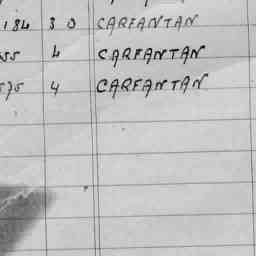 184 30 CARFANTAN
55 4 CARFANTAN
575 4 CARFANTAN